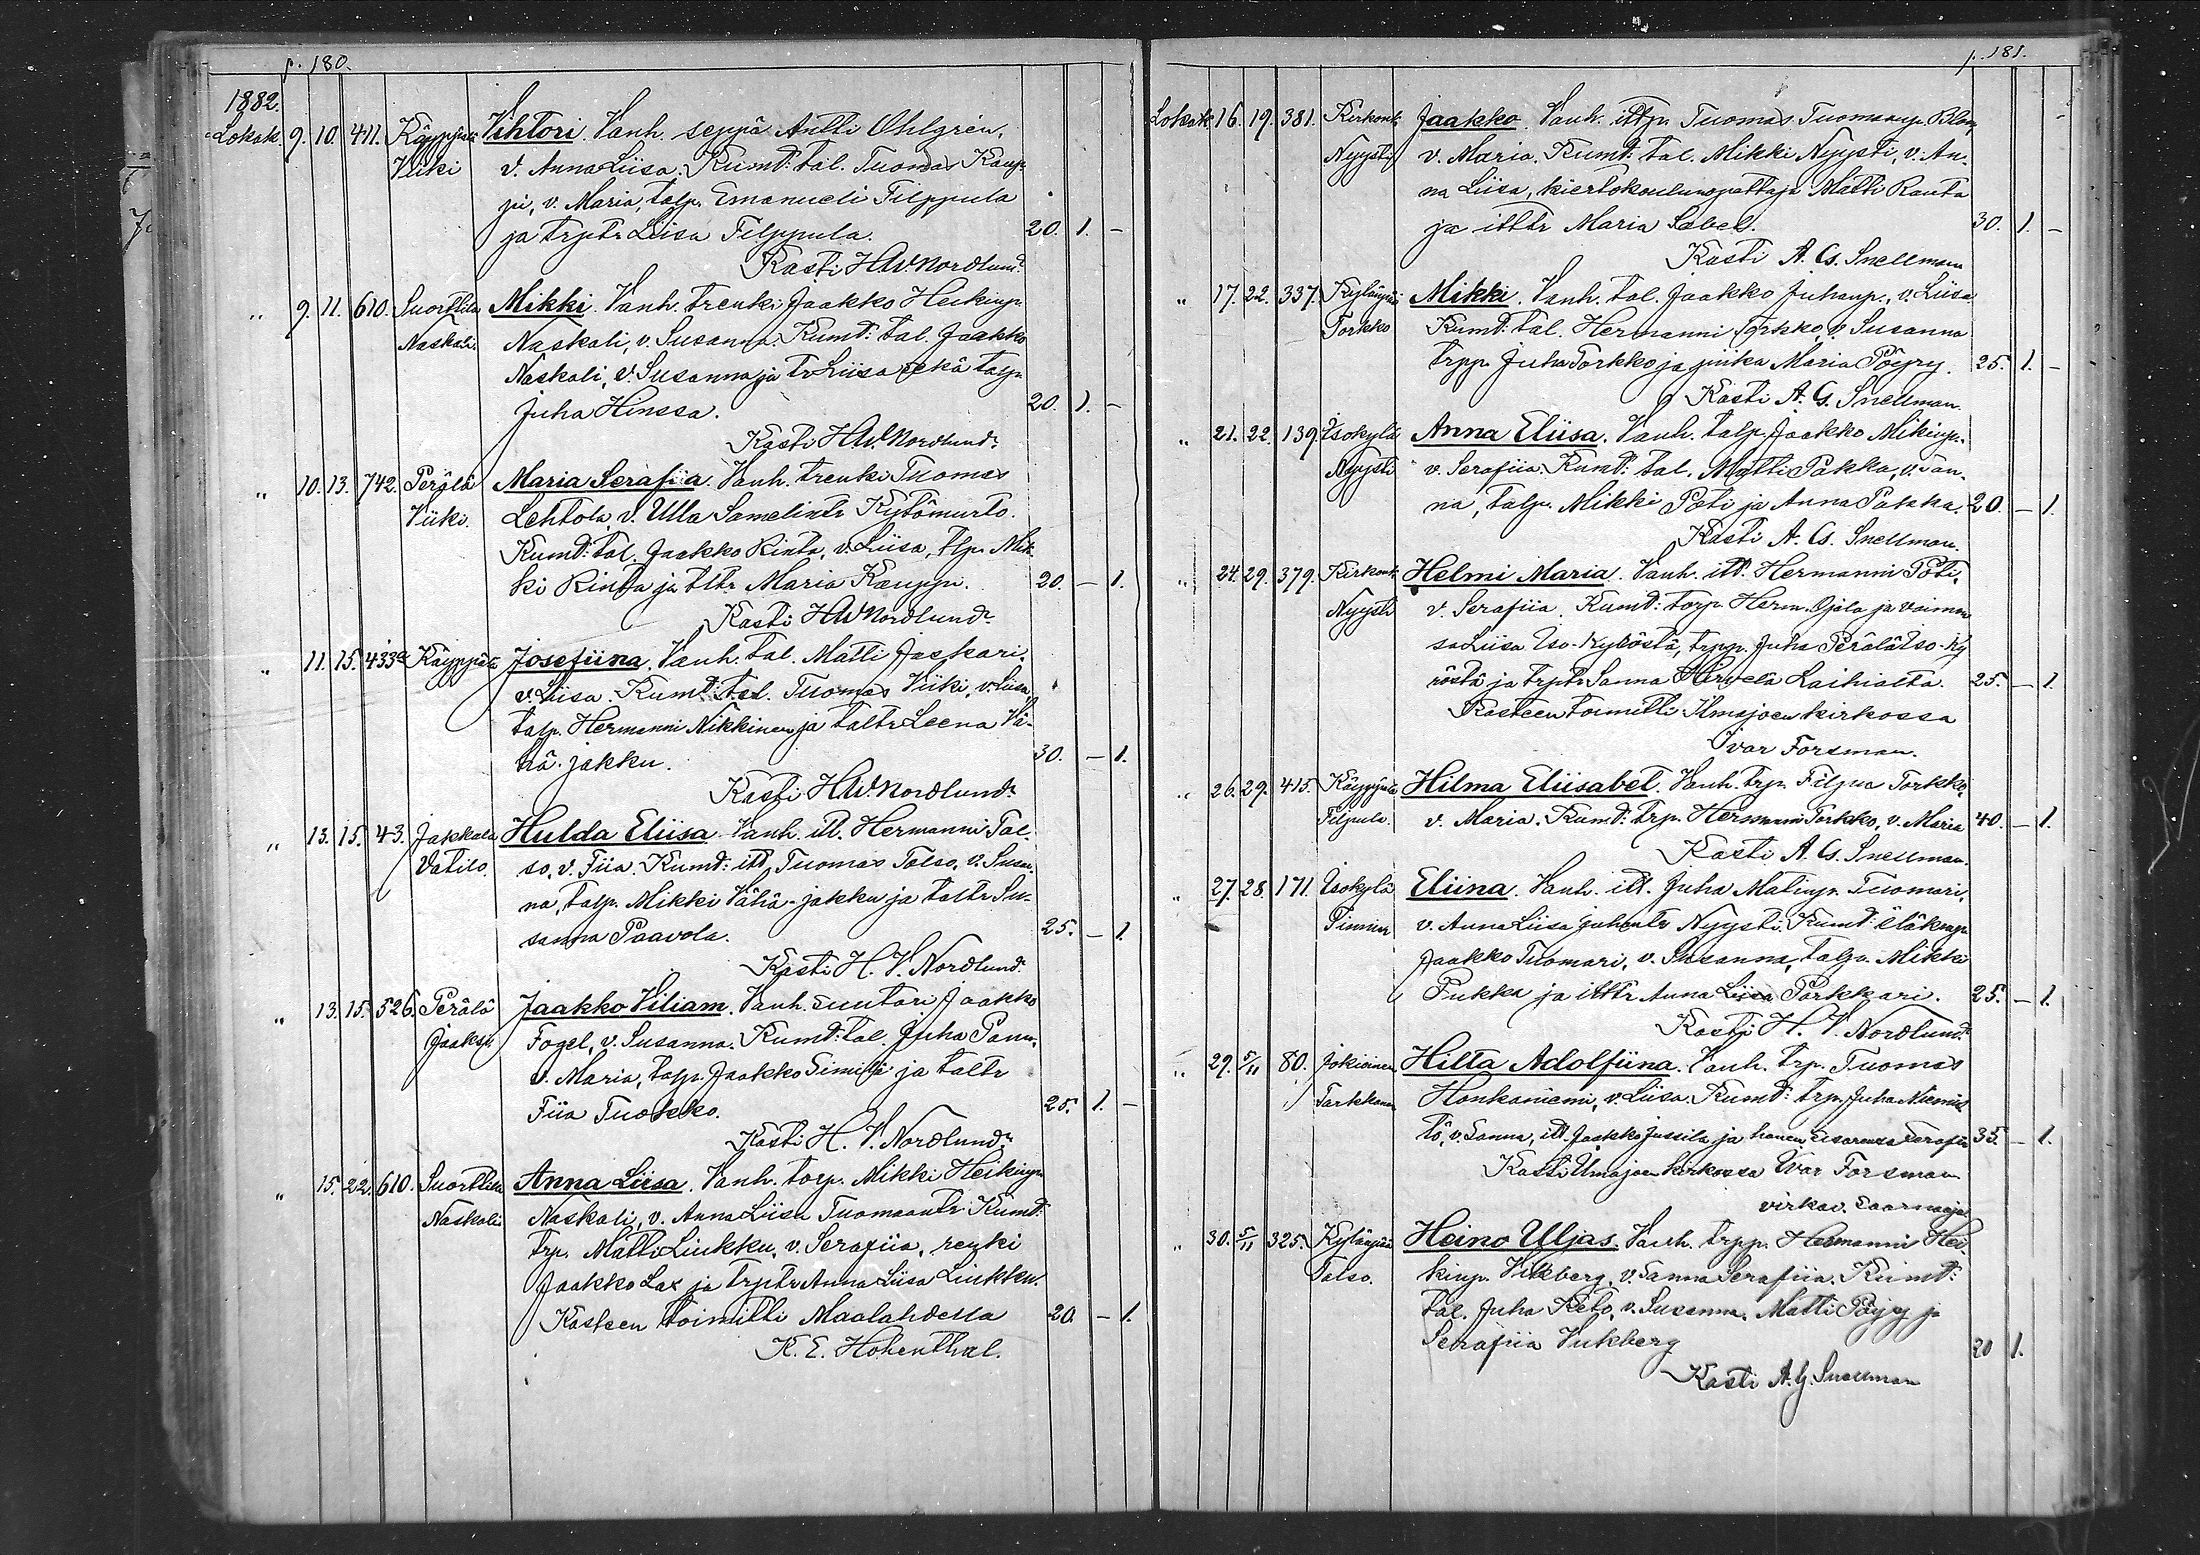 p. 180.
1882.
Lokak. 9. 10. 411. Käyppälä Vihtori. Vanh. seppä Antti Ohlgrén,
Viiki v. Anna Liisa. Kumd: tal. Tuomas Kaup-
pi, v. Maria, talp. Emanueli Filppula
ja trptr Liisa Filppula. 20. 1. -
Kasti HW Nordlund.
" 9. 11. 610. Suorttila Mikki. Vanh. trenki Jaakko Heikinp.
Naskali. Naskali, v. Susanna. Kumd: tal. Jaakko
Naskali, v. Susanna ja tr Liisa sekä talp.
Juha Hinssa. 20. 1. -
Kasti HW Nordlund.
" 10. 13. 742. Perälä Maria Serafia. Vanh. trenki Tuomas
Viiki. Lehtola, v. Ulla Samelintr Kytömurto.
Kumd: tal. Jaakko Rinta, v. Liisa, tlp. Mik-
ki Rinta ja tltr Maria Kauppi. 20. - 1.
Kasti HW Nordlund.
" 11. 15. 433a Käyppälä Josefiina. Vanh. tal. Matti Jaskari,
v. Liisa. Kumd: tal. Tuomas Viiki, v. Liisa,
talp. Hermanni Nikkinen ja taltr Leena Vä-
hä-jakku. 30. - 1.
Kasti HW Nordlund.
" 13. 15. 43. Jakkula Hulda Eliisa. Vanh. itl. Hermanni Tal-
Vatilo. so, v. Fiia. Kumd: itl. Tuomas Talso, v. Susan-
na, talp. Mikki Vähä-jakku ja taltr Su-
sanna Paavola. 25. - 1.
Kasti H. V. Nordlund.
" 13. 15. 526. Perälä Jaakko Viliam. Vanh. suutari Jaakko
Fogel, v. Susanna. Kumd: tal. Juha Panu,
v. Maria, talp. Jaakko Similä ja taltr
Fiia Tuokko. 25. 1. -
Kasti H. V. Nordlund.
" 15. 22. 610. Suorttila Anna Liisa. Vanh. torp. Mikki Heikinp.
Naskali Naskali, v. Anna Liisa Tuomaantr. Kumd:
trp. Matti Liukku, v. Serafiia, renki
Jaakko Lax ja trptr Anna Liisa Liukku.
Kasteen toimitti Maalahdella 20. - 1.
K. E. Hohenthal.
p. 181.
Lokak. 16. 19. 381. Kirkonk. Jaakko. Vanh. ittp. Tuomas Tuomaanp.
Nyysti v. Maria. Kumd: tal. Mikki Nyysti, v. An-
na Liisa, kiertokoulunopettaja Matti Ranta
ja itttr Maria Sabel. 30. 1. -
Kasti A. G. Snellman
" 17. 22. 337. Kylänpää Mikki. Vanh. tal. Jaakko Juhanp., v. Liisa
Torkko Kumd: tal. Hermanni Torkko, v. Susanna
trpp. Juha Torkko ja piika Maria Pöyry. 25. 1. -
Kasti A. G. Snellman.
" 21. 22. 139. Isokylä Anna Eliisa. Vanh. talp. Jaakko Mikinp.
Nyysti v. Serafiia. Kumd: tal. Matti Pakka, v. San-
na, talp. Mikki Poti ja Anna Pakka. 20. - 1.
Kasti A. G. Snellman.
" 24. 29. 379. Kirkonk. Helmi Maria. Vanh. itl. Hermanni Poti,
Nyysti v. Serafiia. Kumd: torp. Herm. Ojala ja vaimon-
sa Liisa Iso-Kyröstä, trpp. Juha Perälä Iso-Ky-
röstä ja trptr Sanna Hirvelä Laihialta. 25. - 1.
Kasteen toimitti Ilmajoen kirkossa
Ivar Forsman.
" 26. 29. 415. Käyppälä Hilma Eliisabet. Vanh. trp. Filpus Torkko,
Filpula. v. Maria. Kumd: trp. Hermanni Torkko, v. Maria 40. - 1.
Kasti A. G. Snellman.
" 27. 28. 171. Isokylä Eliina. Vanh. itl. Juha Matinp. Tuomari,
v. Anna Liisa Juhantr Nyysti. Kumd:
Jaakko Tuomari, v. Susanna, talp. Mikki
Pukka ja itttr Anna Liisa Parkkari. 25. - 1.
Kasti H. V. Nordlund.
" 29. 5/11 80. Jokioinen Hilta Adolfiina. Vanh. trp. Tuomas
Honkaniemi, v. Liisa. Kumd: trp. Juha Niemis-
tö, v. Sanna, itl. Jaakko Jussila ja hänen sisarensa Serafia 35. - 1.
Kasti Ilmajoen kirkossa Ivar Forsman
virkav. Saarnaaja
" 30. 5/11 325. Kylänpää Heino Uljas. Vanh. trpp. Hermanni Hei-
Talso. kinp. Vikberg, v. Sanna Serafiia. Kumd:
tal. Juha Keto, v. Susanna, Matti Pöyry ja
Serafiia Vikberg 20 1.
Kasti A. G. Snellman